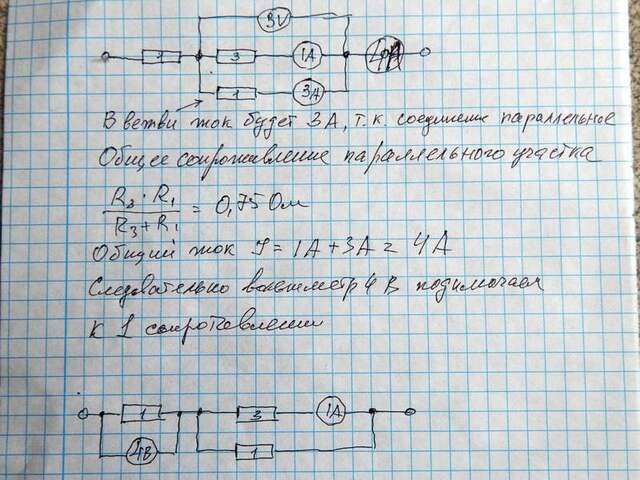 3V
1 3 1A
1 3A
В ветви ток будет 3А, т.к соединение параллельное
Общее сопротивление параллельного участка
R3 · R1
R3 + R1 = 0,75 Ом
Общий ток I = 1А + 3А = 4А
Следовательно вольтметр 4 В подключаем
к 1 сопротивлению
1 3 1А
4В 1